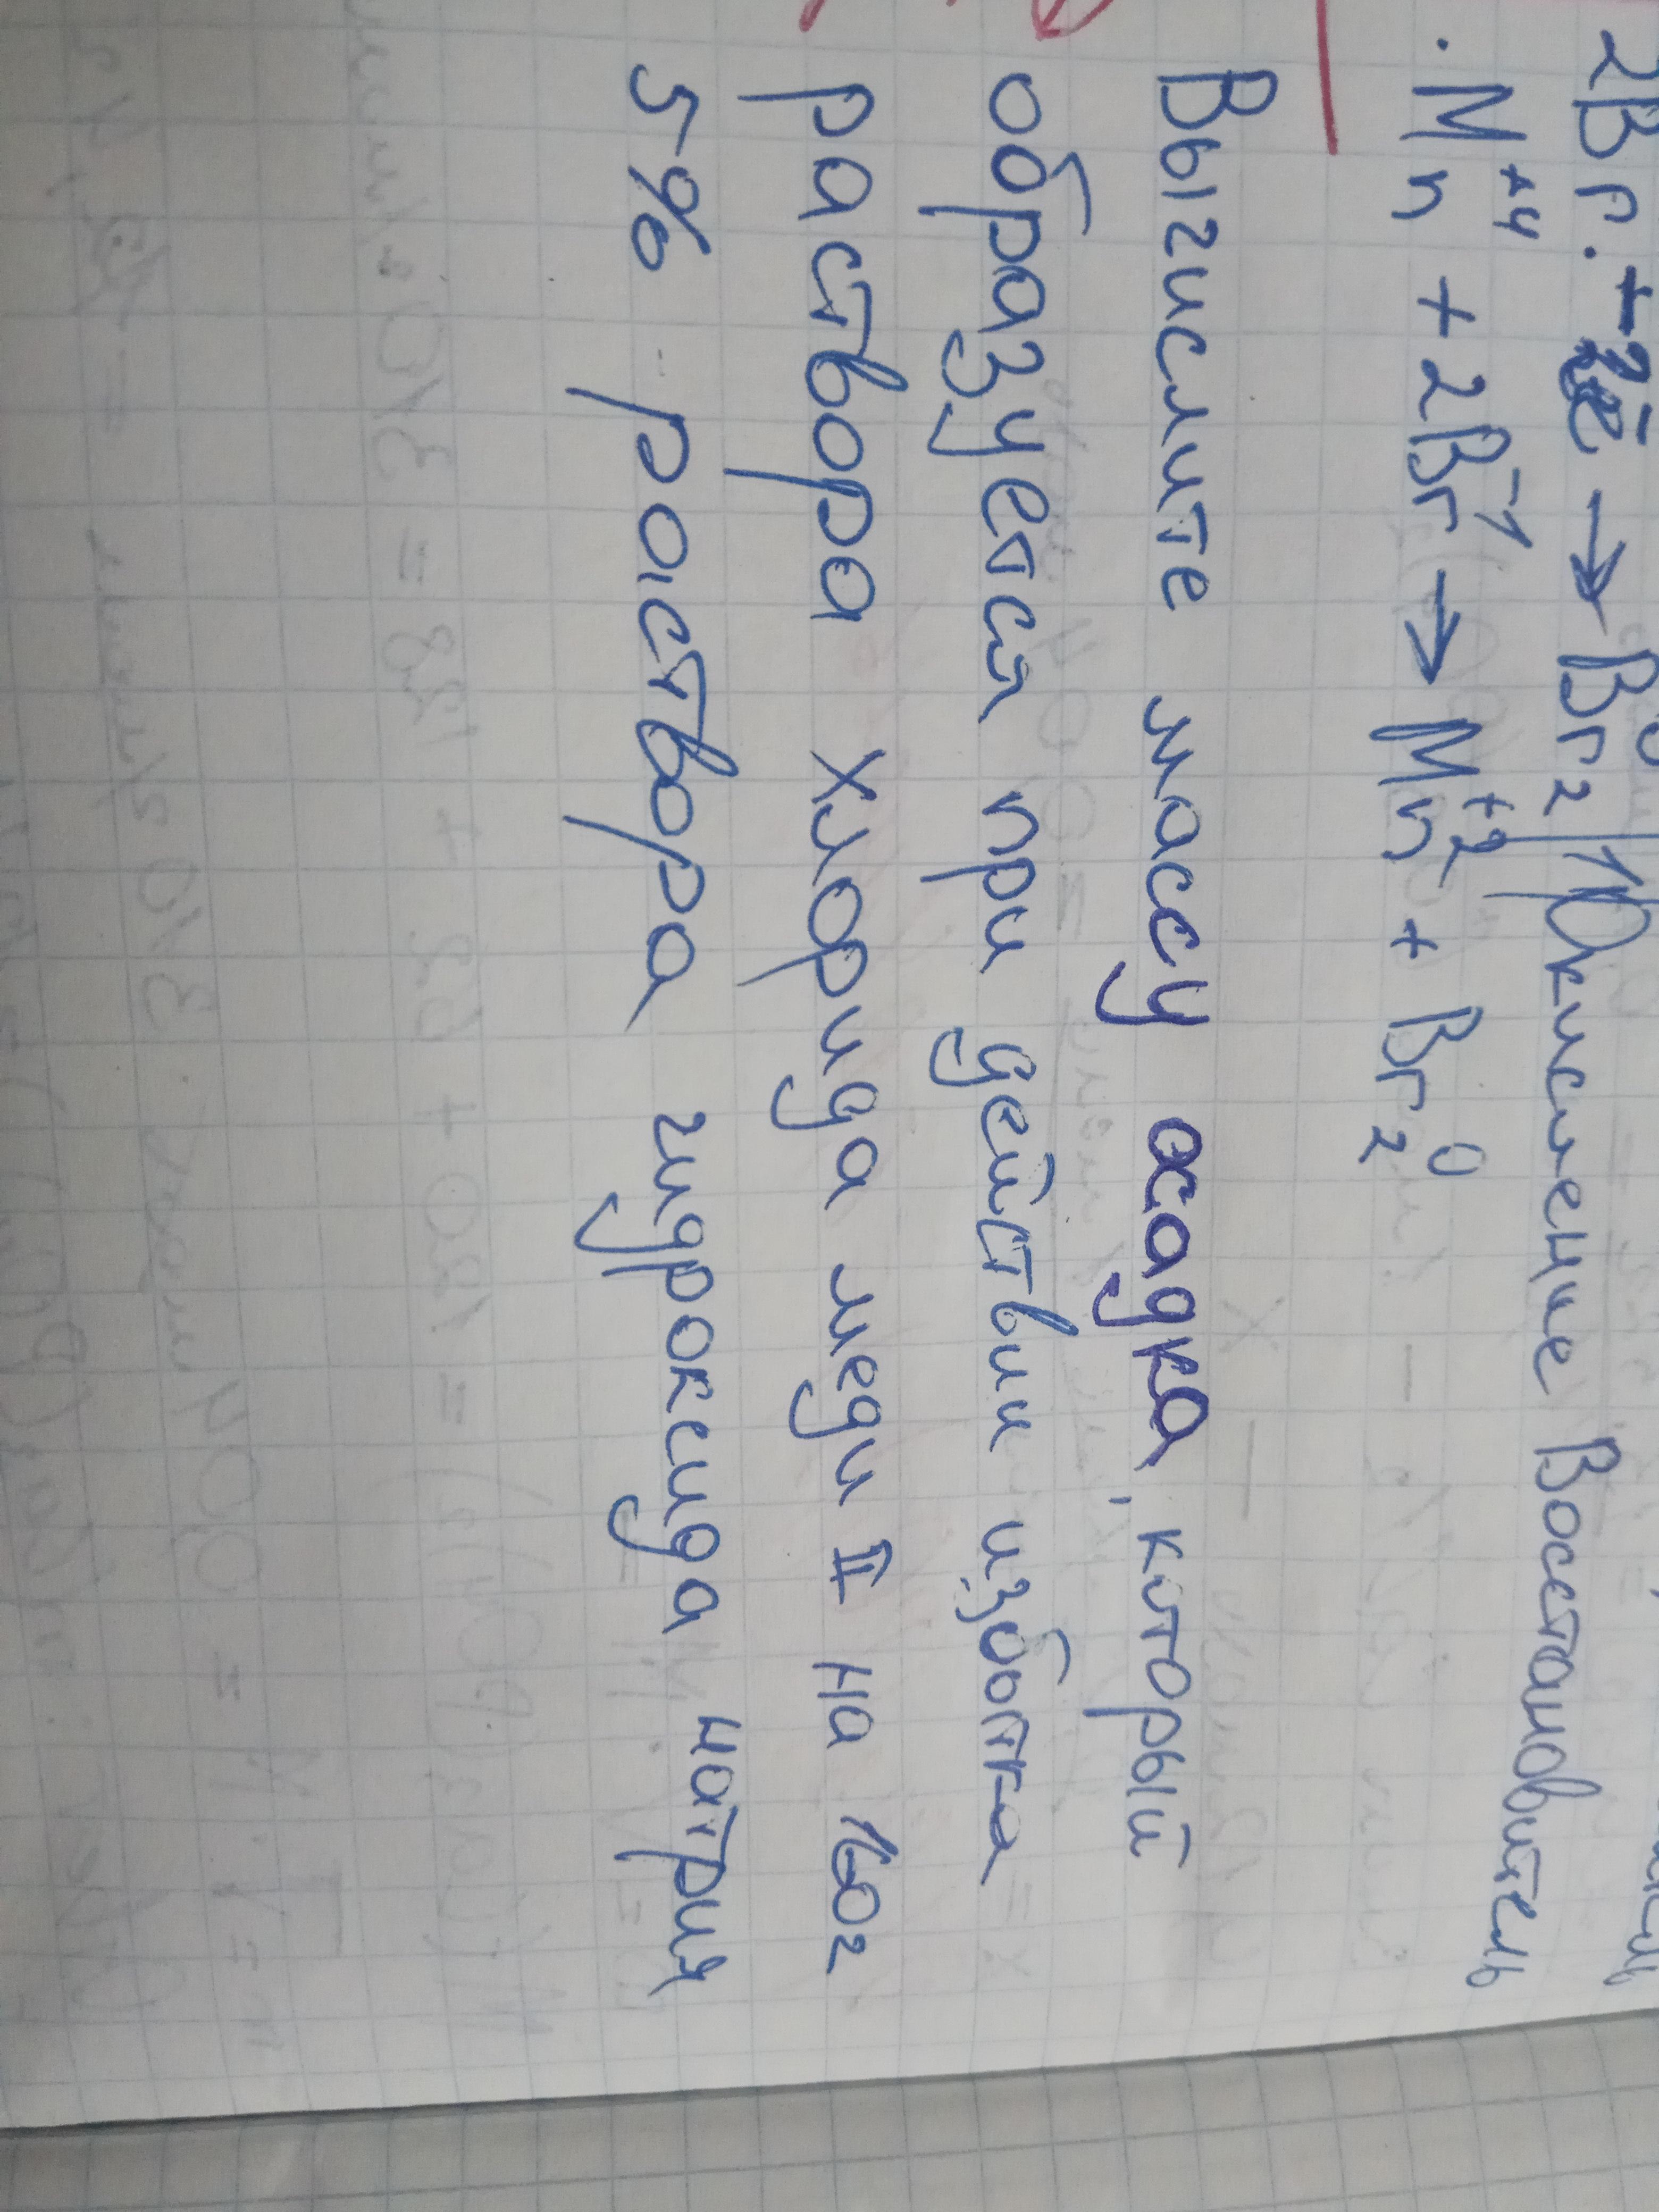 2Br. - 2e̅ → Br₂⁰ | 1 Окисление Восстановитель
Mn⁺⁴ + 2Br⁻¹ → Mn⁺² + Br₂⁰
Вычислите массу осадка, который
образуется при действии избытка
раствора хлорида меди II на 160г
5% раствора гидроксида натрия